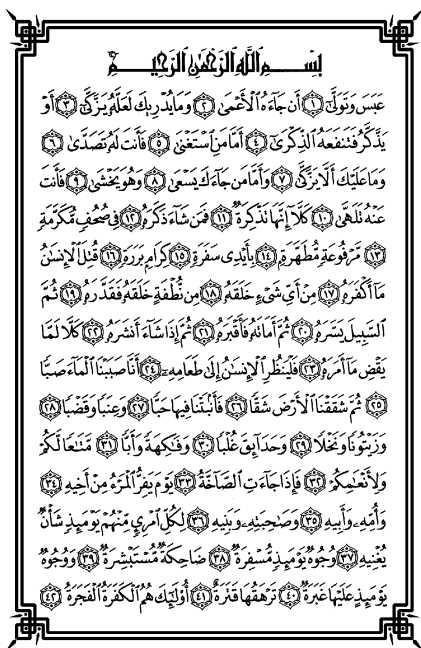 بِسْمِ اللَّهِ الرَّحْمَٰنِ الرَّحِيمِ
عَبَسَ وَتَوَلَّىٰٓ ۝١ أَن جَآءَهُ ٱلْأَعْمَىٰ ۝٢ وَمَا يُدْرِيكَ لَعَلَّهُۥ يَزَّكَّىٰٓ ۝٣ أَوْ
يَذَّكَّرُ فَتَنفَعَهُ ٱلذِّكْرَىٰٓ ۝٤ أَمَّا مَنِ ٱسْتَغْنَىٰ ۝٥ فَأَنتَ لَهُۥ تَصَدَّىٰ ۝٦
وَمَا عَلَيْكَ أَلَّا يَزَّكَّىٰ ۝٧ وَأَمَّا مَن جَآءَكَ يَسْعَىٰ ۝٨ وَهُوَ يَخْشَىٰ ۝٩ فَأَنتَ
عَنْهُ تَلَهَّىٰ ۝١٠ كَلَّآ إِنَّهَا تَذْكِرَةٌ ۝١١ فَمَن شَآءَ ذَكَرَهُۥ ۝١٢ فِى صُحُفٍ مُّكَرَّمَةٍ
۝١٣ مَّرْفُوعَةٍ مُّطَهَّرَةٍۭ ۝١٤ بِأَيْدِى سَفَرَةٍ ۝١٥ كِرَامٍۭ بَرَرَةٍ ۝١٦ قُتِلَ ٱلْإِنسَٰنُ
مَآ أَكْفَرَهُۥ ۝١٧ مِنْ أَىِّ شَىْءٍ خَلَقَهُۥ ۝١٨ مِن نُّطْفَةٍ خَلَقَهُۥ فَقَدَّرَهُۥ ۝١٩ ثُمَّ
ٱلسَّبِيلَ يَسَّرَهُۥ ۝٢٠ ثُمَّ أَمَاتَهُۥ فَأَقْبَرَهُۥ ۝٢١ ثُمَّ إِذَا شَآءَ أَنشَرَهُۥ ۝٢٢ كَلَّا لَمَّا
يَقْضِ مَآ أَمَرَهُۥ ۝٢٣ فَلْيَنظُرِ ٱلْإِنسَٰنُ إِلَىٰ طَعَامِهِۦٓ ۝٢٤ أَنَّا صَبَبْنَا ٱلْمَآءَ صَبًّا
۝٢٥ ثُمَّ شَقَقْنَا ٱلْأَرْضَ شَقًّا ۝٢٦ فَأَنۢبَتْنَا فِيهَا حَبًّا ۝٢٧ وَعِنَبًا وَقَضْبًا ۝٢٨
وَزَيْتُونًا وَنَخْلًا ۝٢٩ وَحَدَآئِقَ غُلْبًا ۝٣٠ وَفَٰكِهَةً وَأَبًّا ۝٣١ مَّتَٰعًا لَّكُمْ
وَلِأَنْعَٰمِكُمْ ۝٣٢ فَإِذَا جَآءَتِ ٱلصَّآخَّةُ ۝٣٣ يَوْمَ يَفِرُّ ٱلْمَرْءُ مِنْ أَخِيهِ ۝٣٤
وَأُمِّهِۦ وَأَبِيهِ ۝٣٥ وَصَٰحِبَتِهِۦ وَبَنِيهِ ۝٣٦ لِكُلِّ ٱمْرِئٍ مِّنْهُمْ يَوْمَئِذٍ شَأْنٌ
يُغْنِيهِ ۝٣٧ وُجُوهٌ يَوْمَئِذٍ مُّسْفِرَةٌ ۝٣٨ ضَاحِكَةٌ مُّسْتَبْشِرَةٌ ۝٣٩ وَوُجُوهٌ
يَوْمَئِذٍ عَلَيْهَا غَبَرَةٌ ۝٤٠ تَرْهَقُهَا قَتَرَةٌ ۝٤١ أُو۟لَٰٓئِكَ هُمُ ٱلْكَفَرَةُ ٱلْفَجَرَةُ ۝٤٢